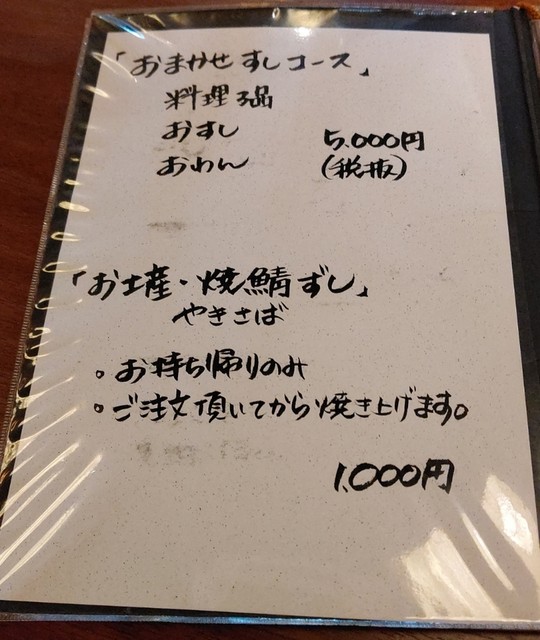 「おまかせすしコース」
料理3品
おすし
5.000円
おわん
(税抜)
「お土産・焼鯖ずし」
やきさば
。お持ち帰りのみ
。ご注文頂いてから焼き上げます。
1.000円